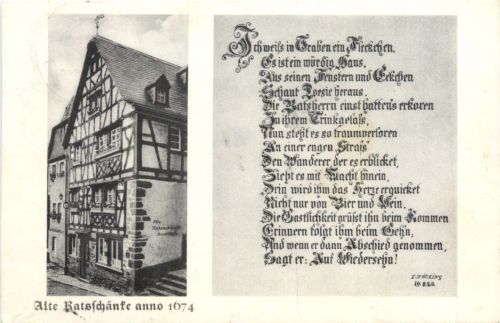 Ich weiß in Traben ein Fleckchen,
Es ist ein würdig Haus,
Aus seinen Fenstern und Eckchen
Schaut Poesie heraus.
Die Ratsherrn einst hatten's erkoren
Zu ihrem Trinkgelaß,
Nun steht es so traumverloren
An einer engen Straß
Den Wanderer, der es erblicket,
Zieht es mit Macht hinein,
Drin wird ihm das Herze erquicket
Nicht nur von Bier und Wein.
Die Gastlichkeit grüßt ihn beim Kommen
Erinnern folgt ihm beim Gehn,
Und wenn er dann Abschied genommen,
Sagt er: Auf Wiedersehn!
Alte Ratsschänke anno 1674